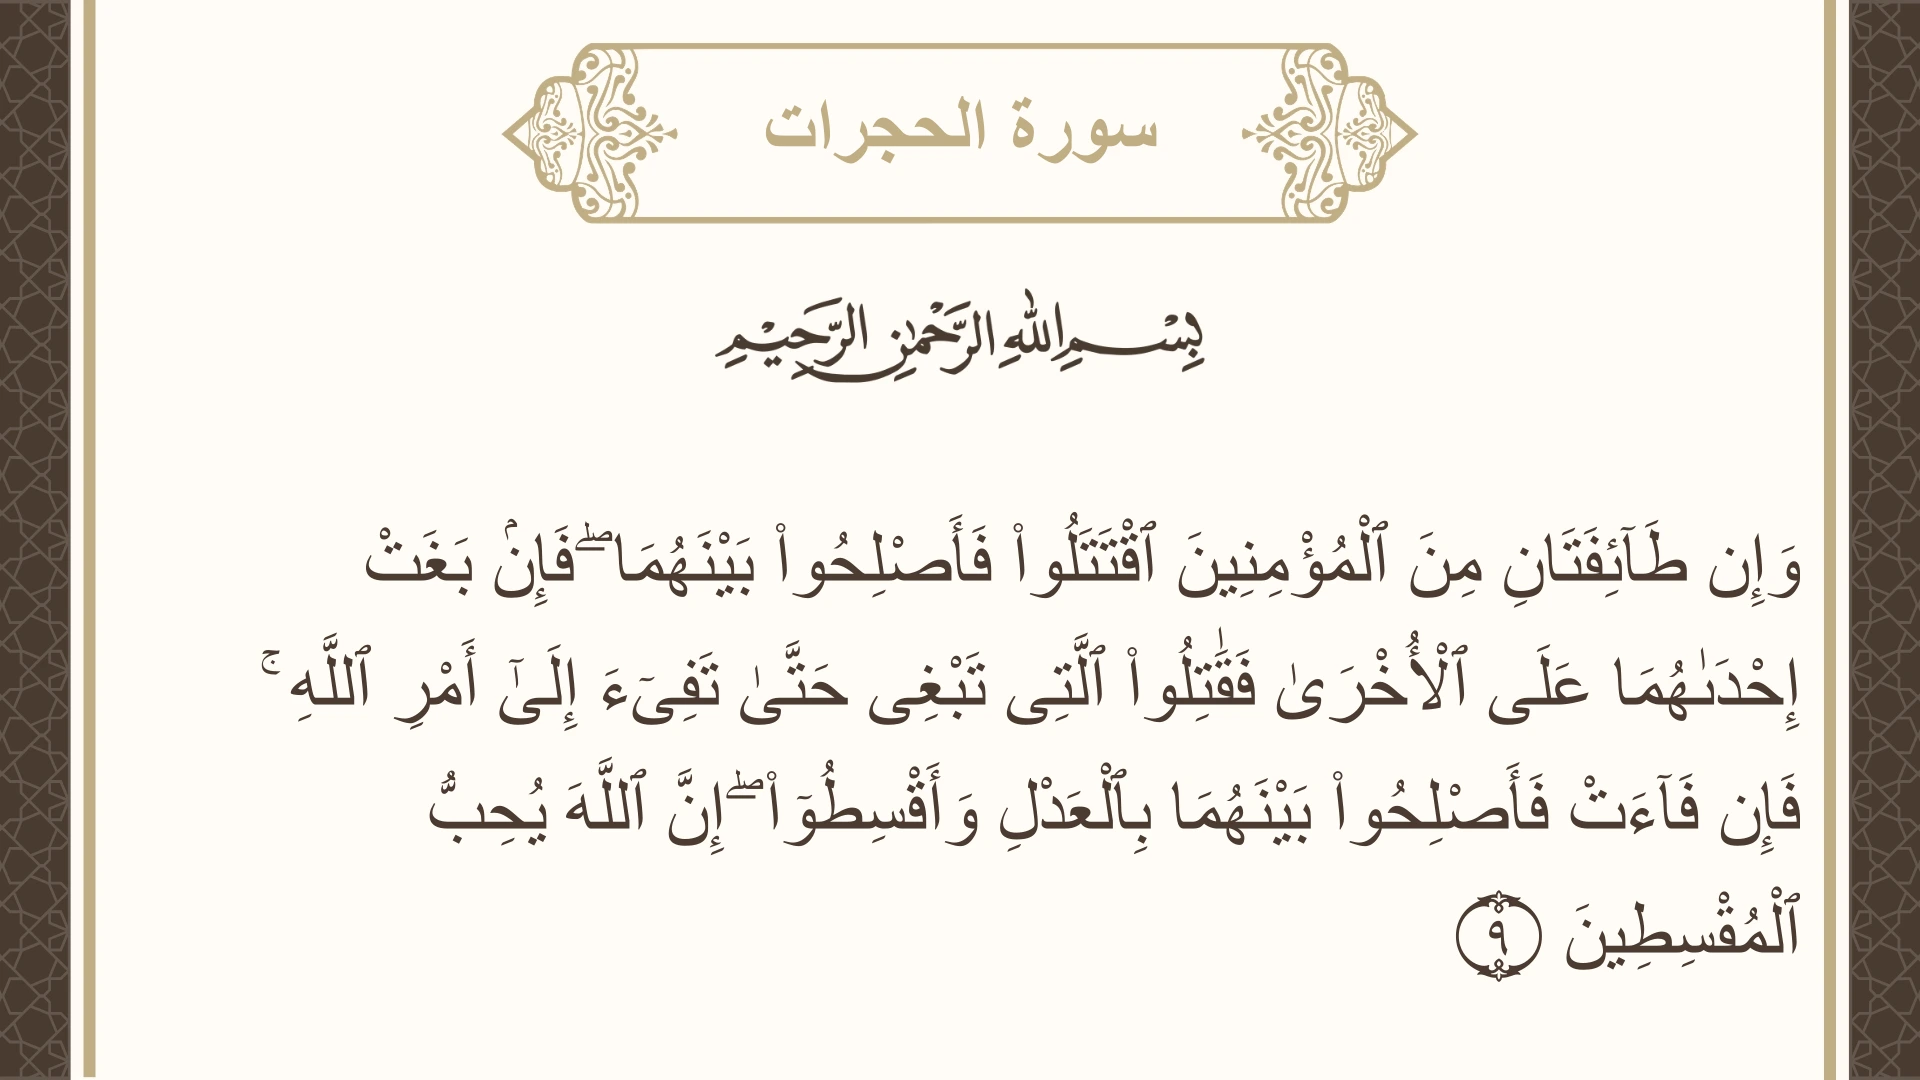 سورة الحجرات
بِسْمِ اللهِ الرَّحْمٰنِ الرَّحِيْمِ
وَإِن طَآئِفَتَانِ مِنَ ٱلْمُؤْمِنِينَ ٱقْتَتَلُوا۟ فَأَصْلِحُوا۟ بَيْنَهُمَا ۖ فَإِنۢ بَغَتْ
إِحْدَىٰهُمَا عَلَى ٱلْأُخْرَىٰ فَقَـٰتِلُوا۟ ٱلَّتِى تَبْغِى حَتَّىٰ تَفِىٓءَ إِلَىٰٓ أَمْرِ ٱللَّهِ ۚ
فَإِن فَآءَتْ فَأَصْلِحُوا۟ بَيْنَهُمَا بِٱلْعَدْلِ وَأَقْسِطُوٓا۟ ۖ إِنَّ ٱللَّهَ يُحِبُّ
ٱلْمُقْسِطِينَ ٩